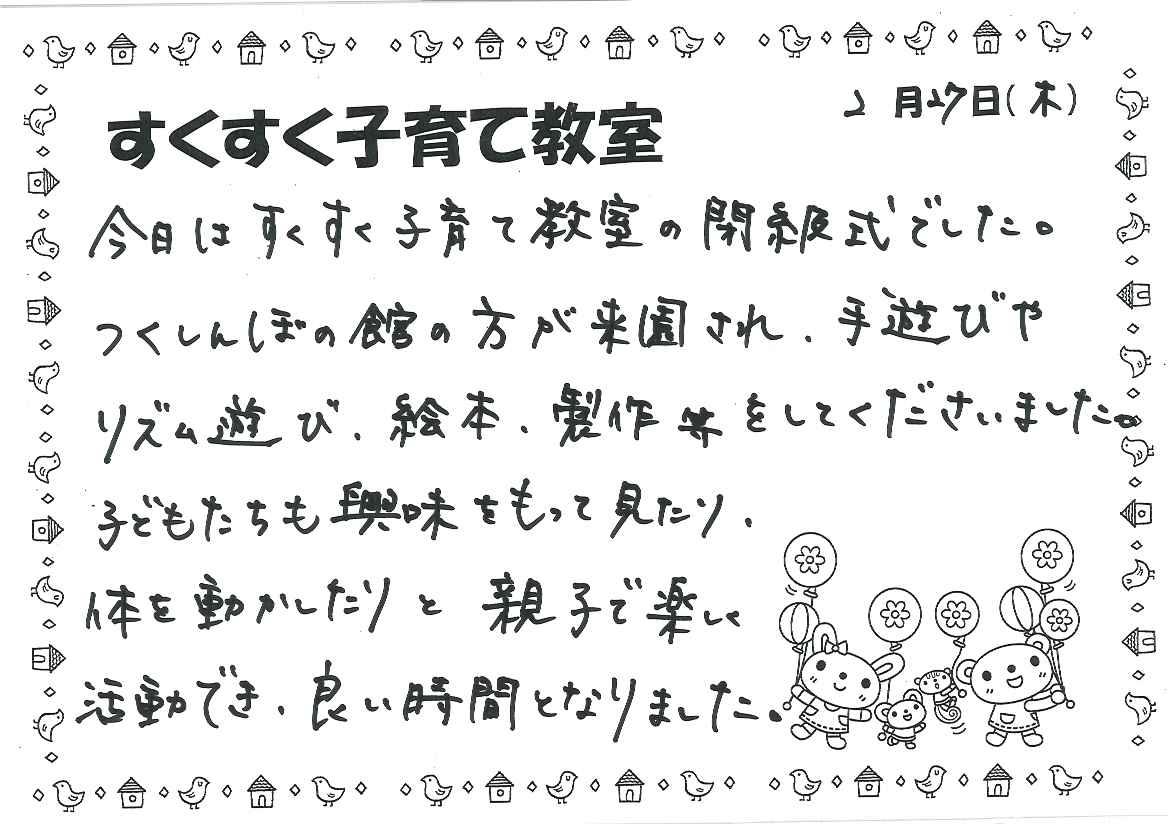 2月27日(木)
すくすく子育て教室
今日はすくすく子育て教室の閉級式でした。
つくしんぼの館の方が来園され、手遊びや
リズム遊び、絵本、製作等をしてくださいました。
子どもたちも興味をもって見たり、
体を動かしたりと親子で楽しく
活動でき、良い時間となりました。